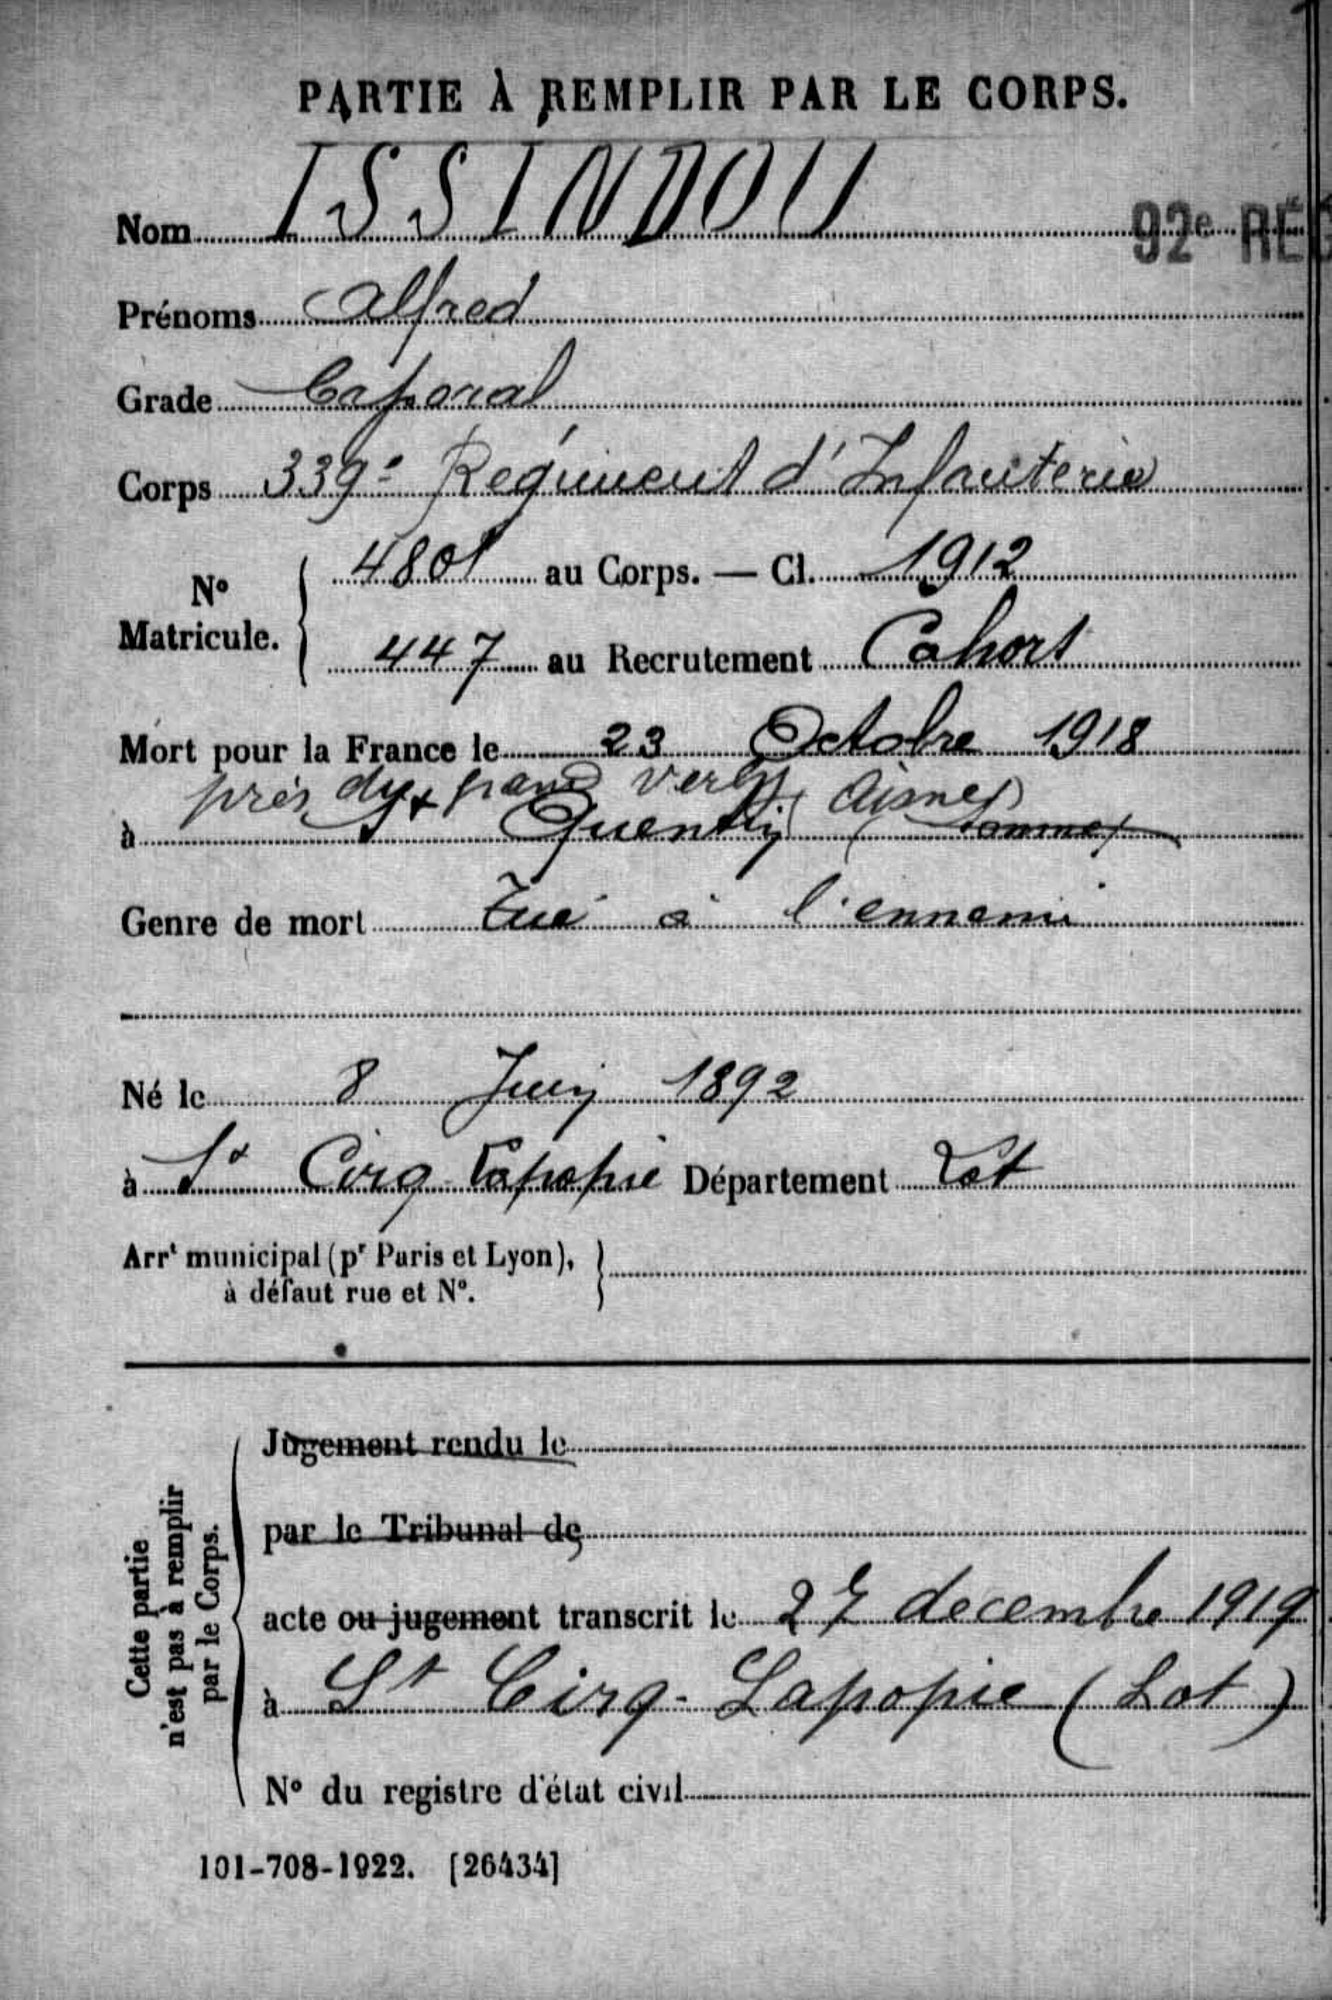 PARTIE À REMPLIR PAR LE CORPS.
Nom ISSINDOU
92e RÉG
Prénoms Alfred
Grade Caporal
Corps 339e Régiment d'Infanterie
No Matricule. 4801 au Corps. — Cl. 1912
447 au Recrutement Cahors
Mort pour la France le 23 Octobre 1918
près du grand Verly (Aisne)
à St Quentin (Somme)
Genre de mort Tué à l'ennemi
Né le 8 Juin 1892
à St Cirq Lapopie Département Lot
Arrt municipal (pr Paris et Lyon),
à défaut rue et No.
Cette partie
n'est pas à remplir
par le Corps.
Jugement rendu le
par le Tribunal de
acte ou jugement transcrit le 27 decembre 1919
à St Cirq-Lapopie (Lot)
No du registre d'état civil
101-708-1922. [26434]